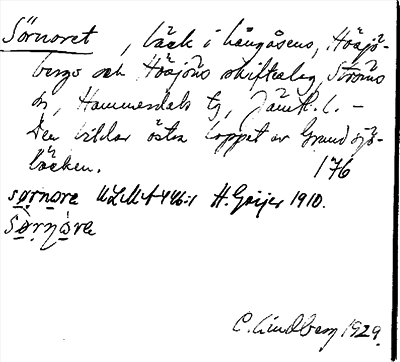 Sörnoret, bäck i Långåsens, Höåsjö-
bergs och Höåsjöns skifteslag, Ströms
sn, Hammerdals tg, Jämtl. l. –
Den bildar östra loppet av Grundsjö-
bäcken. 176
sørnore ULMA 446:1 H. Geijer 1910.
sørnòre
C. Lindberg 1929.